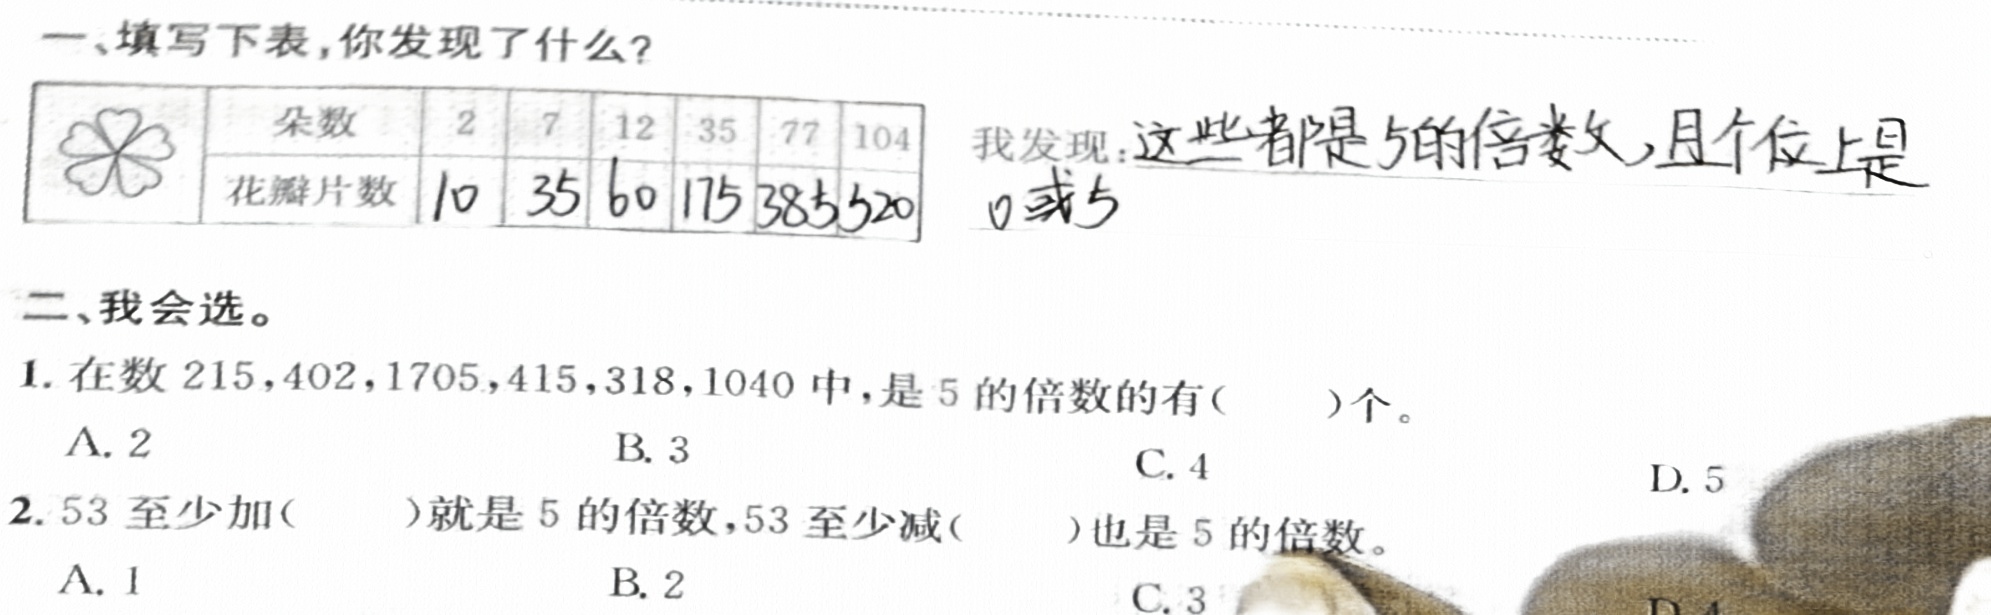 一、填写下表,你发现了什么?
朵数 2 7 12 35 77 104
花瓣片数 10 35 60 175 385 520
我发现:这些都是5的倍数,且个位上是
0或5
二、我会选。
1. 在数 215,402,1705,415,318,1040 中,是 5 的倍数的有( )个。
A. 2 B. 3 C. 4 D. 5
2. 53 至少加( )就是 5 的倍数,53 至少减( )也是 5 的倍数。
A. 1 B. 2 C. 3 D. 4